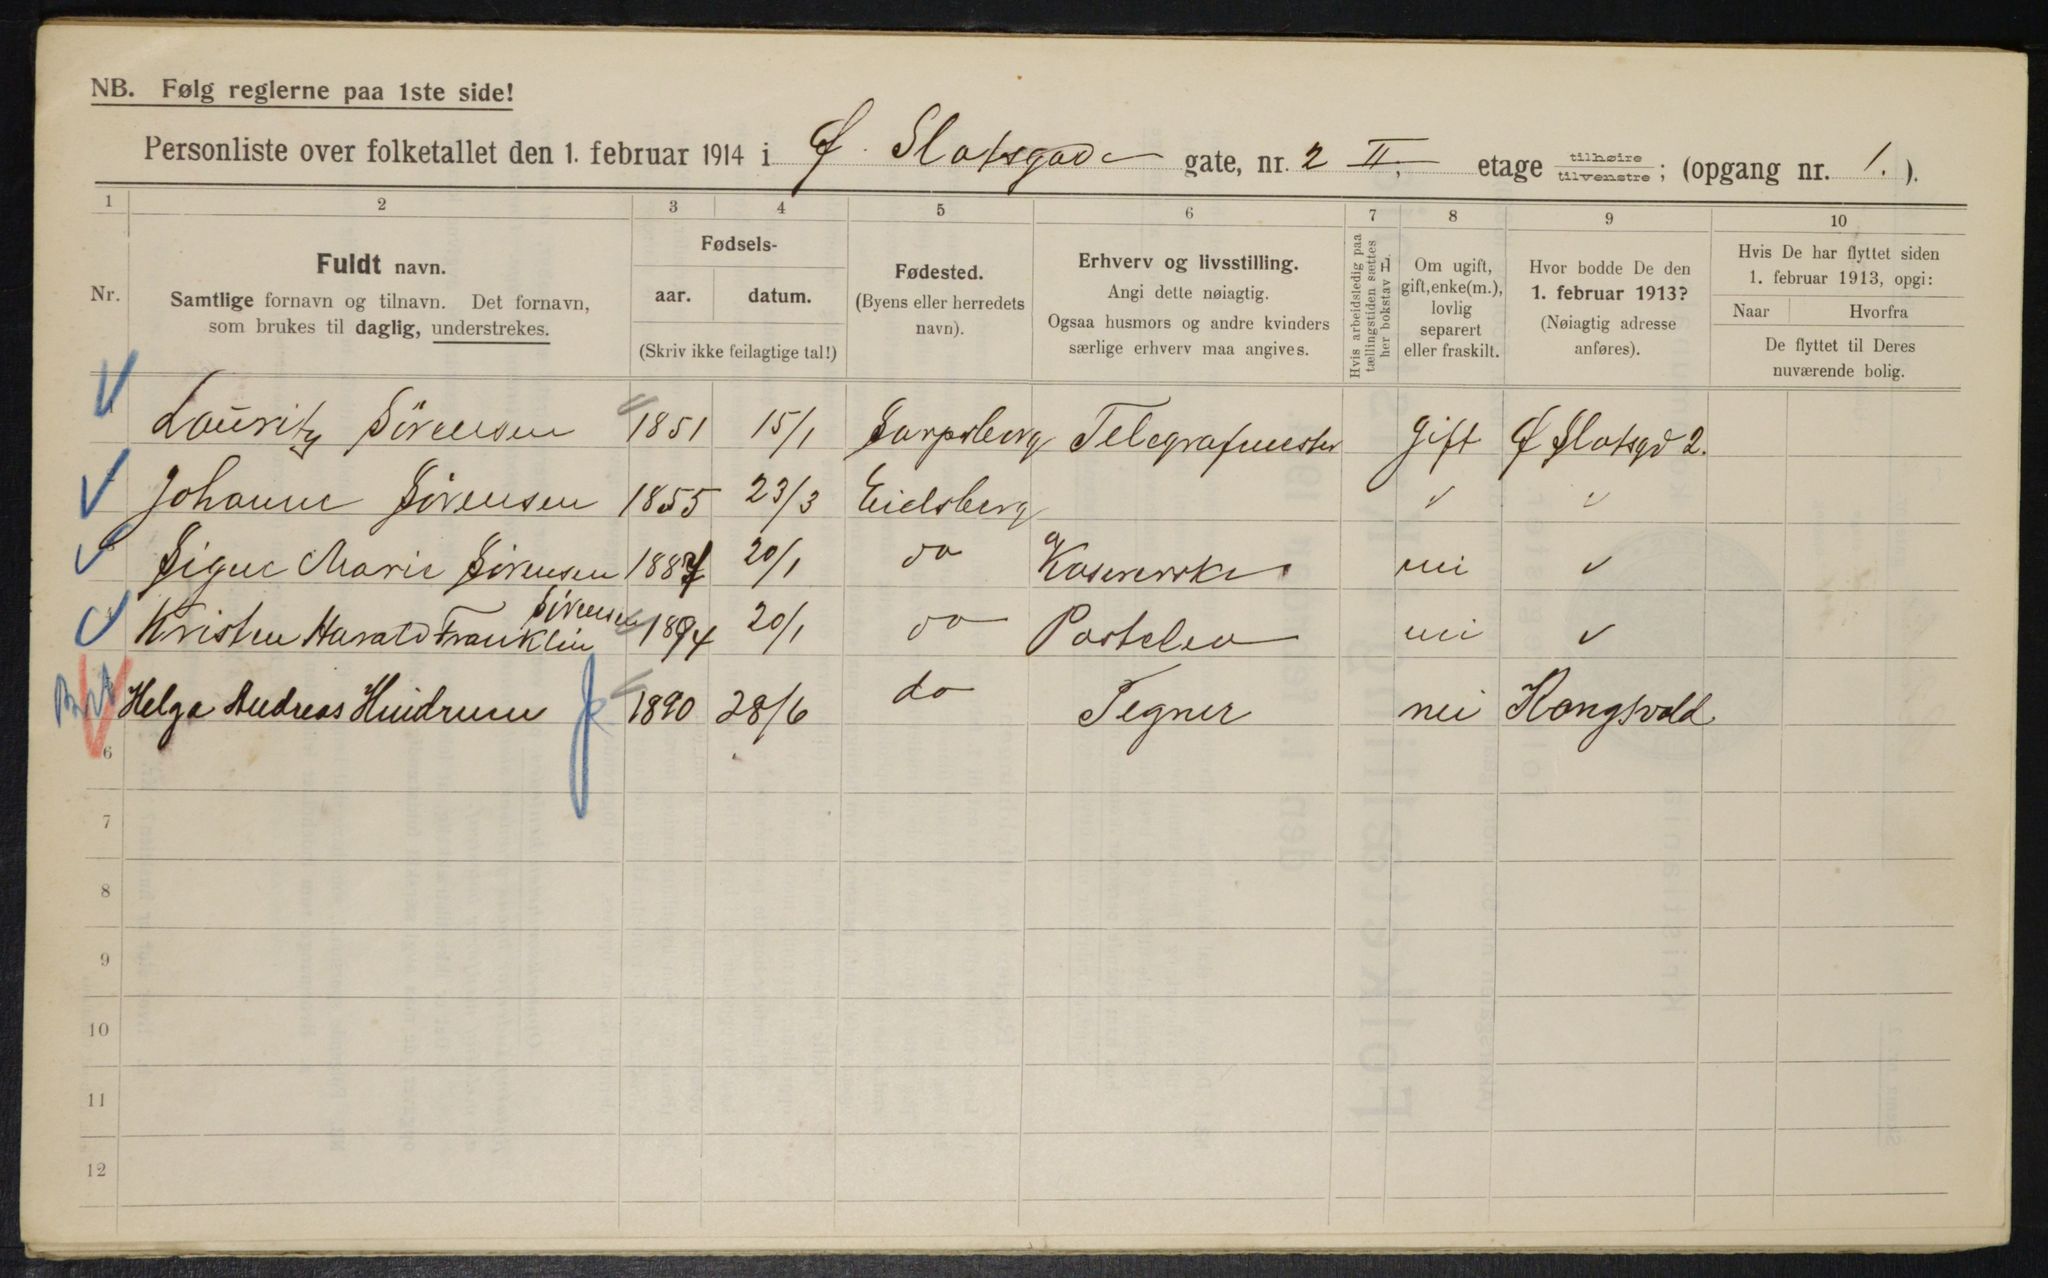 NB. Følg reglerne paa 1ste side!
Personliste over folketallet den 1. februar 1914 i Ø. Slotsgade gate, nr. 2 II. etage tilhøire tilvenstre; (opgang nr. 1.).
1 2 3 4 5 6 7 8 9 10
Nr.
Fuldt navn.
Samtlige fornavn og tilnavn. Det fornavn,
som brukes til daglig, understrekes.
Fødsels-
aar. datum.
(Skriv ikke feilagtige tal!)
Fødested.
(Byens eller herredets
navn).
Erhverv og livsstilling.
Angi dette nøiagtig.
Ogsaa husmors og andre kvinders
særlige erhverv maa angives.
Hvis arbeidsledig paa
tællingstiden sættes
her bokstav H
Om ugift,
gift, enke(m.),
lovlig
separert
eller fraskilt.
Hvor bodde De den
1. februar 1913?
(Nøiagtig adresse
anføres).
Hvis De har flyttet siden
1. februar 1913, opgi:
Naar Hvorfra
De flyttet til Deres
nuværende bolig.
Lauritz Sörensen 1851 15/1 Sarpsberg Telegrafmester Gift Ø Slotsgd 2.
Johanne Sørensen 1855 23/3 Eidsberg
Signe Marie Sørensen 1887 20/1 do nei
Kristen Harald Franklin Sørensen 1894 20/1 do nei
Helge Andreas Hindrum 1890 28/6 do Tegner nei Kongsvold
6
7
8
9
10
11
12